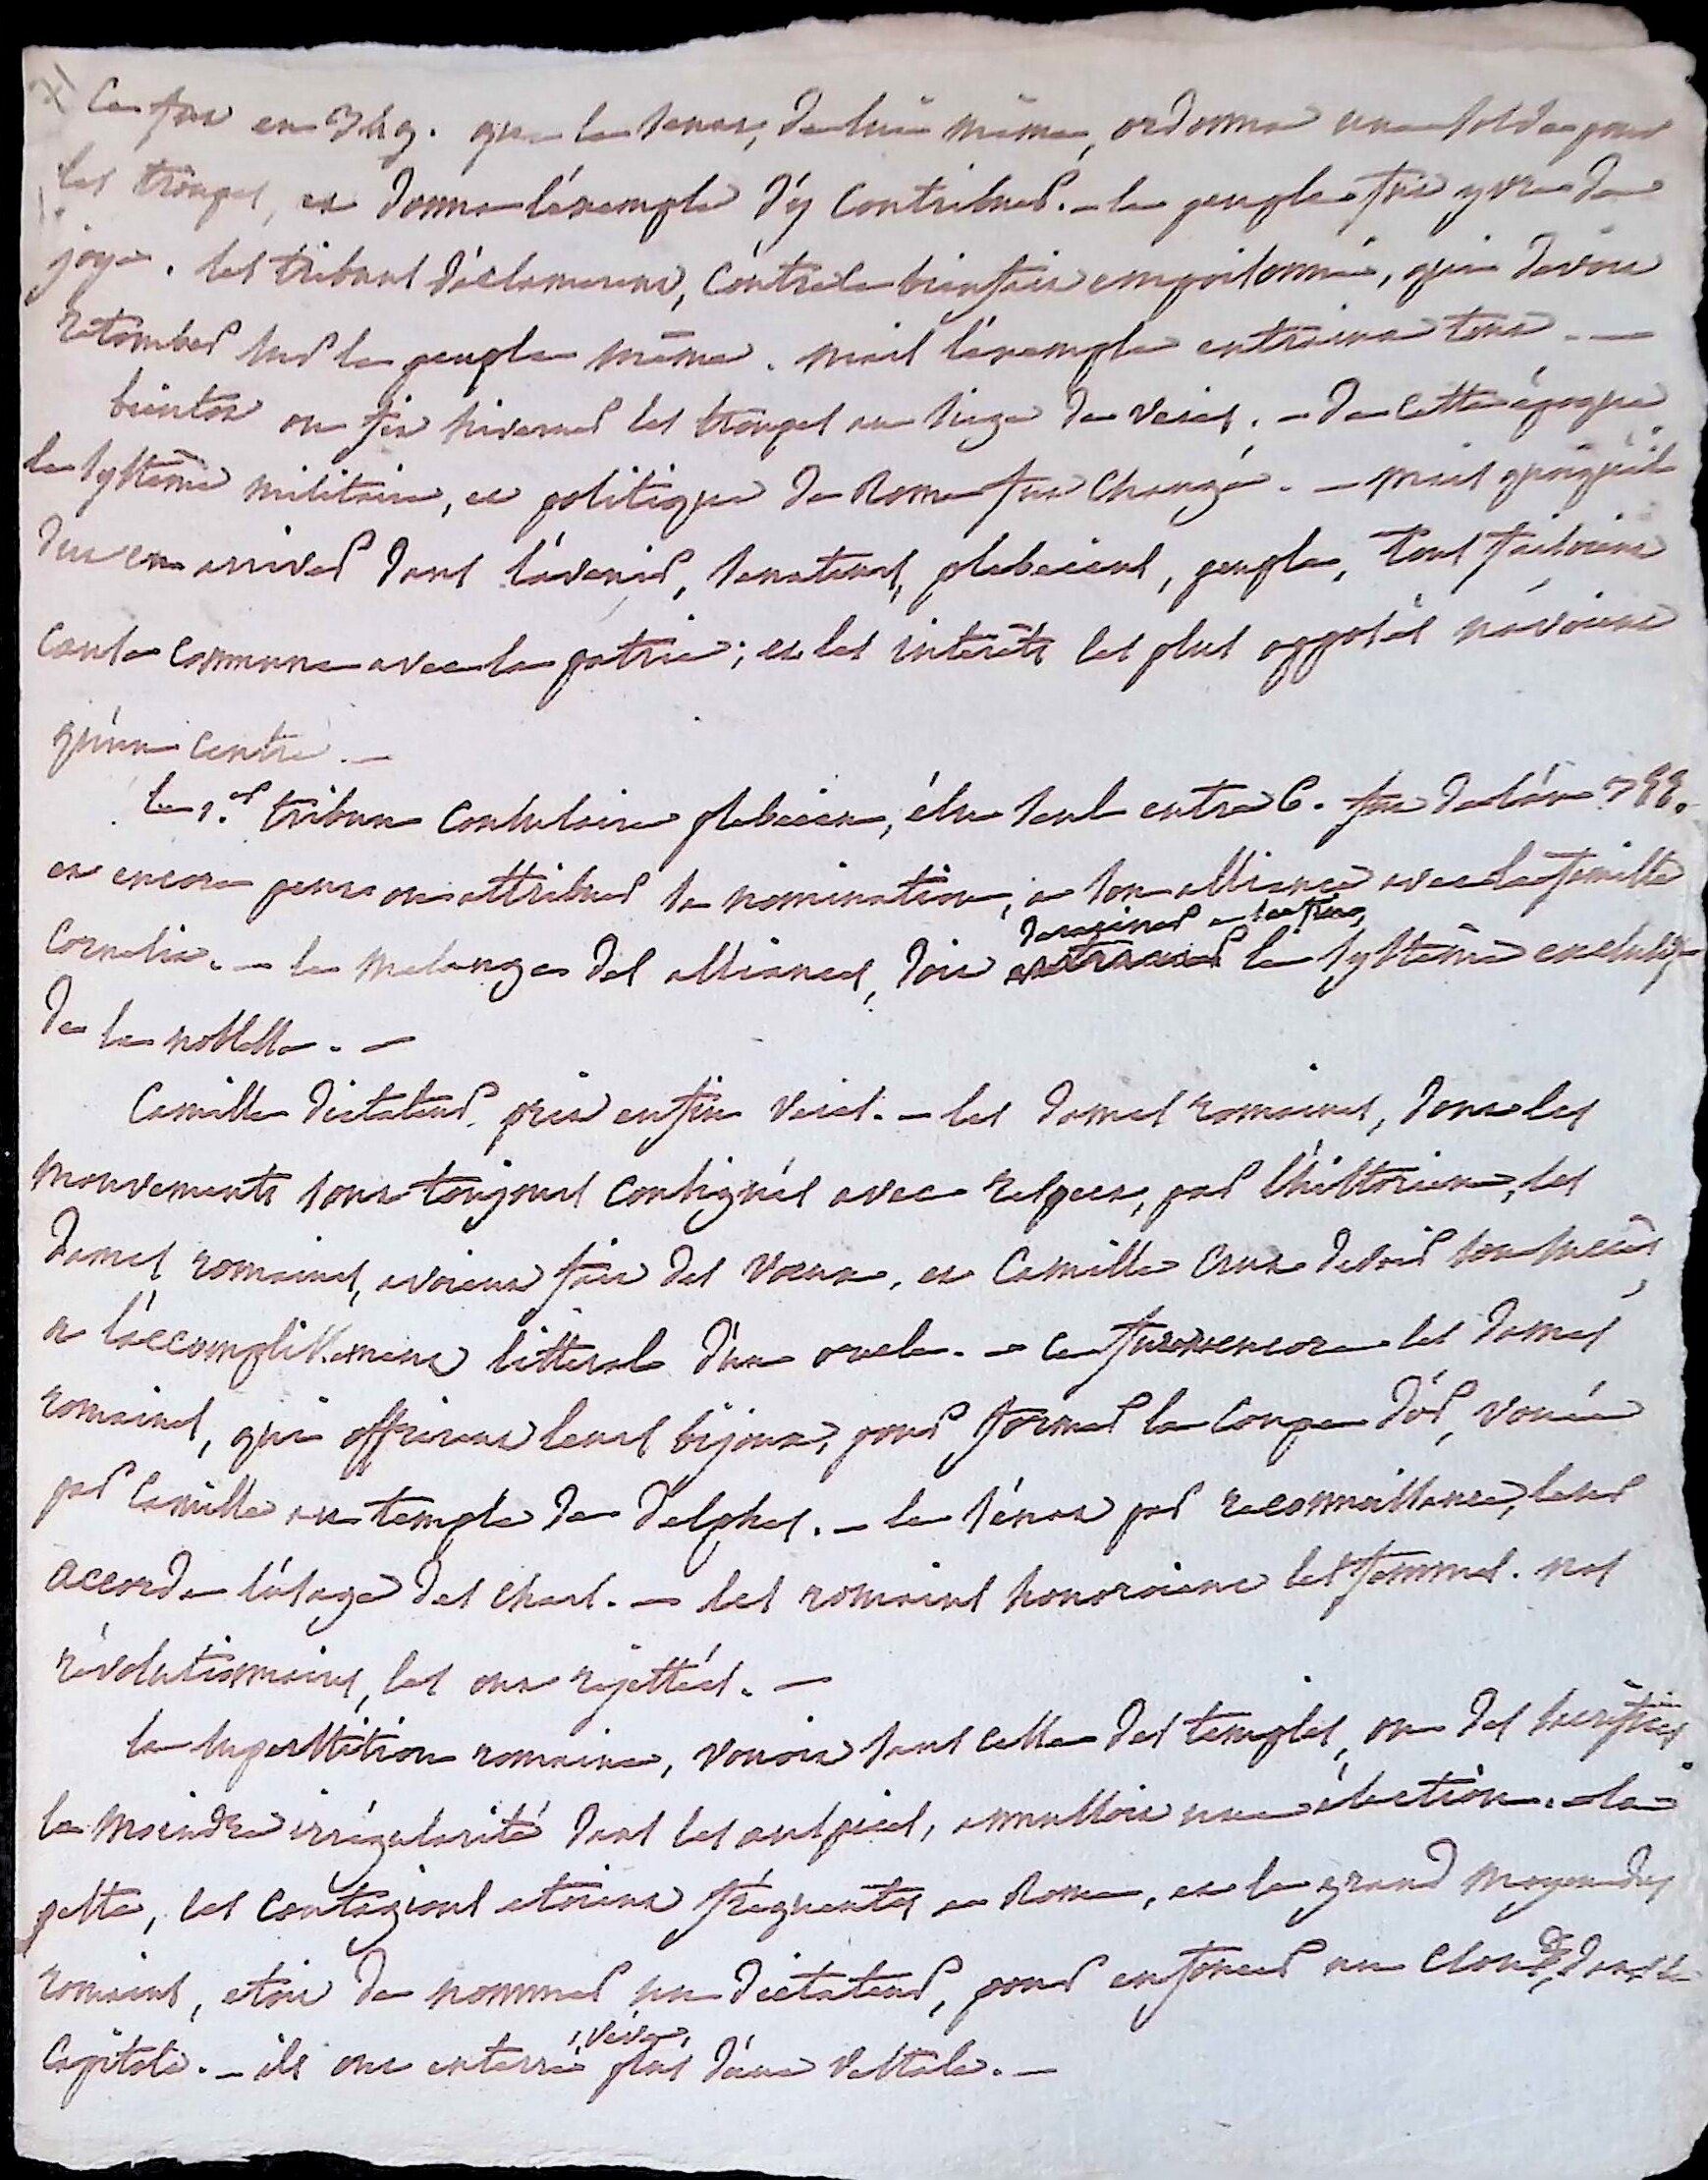 Ce fut en 349. que le senat, de lui même, ordonna une solde pour
les troupes, et donna l'éxemple d'y contribuer. - le peuple fut yvre de
joye. les tribuns déclamerent, contre le bienfait empoisonné, qui devoit
retomber sur le peuple même. mais l'éxemple entraina tout. -
bientot on fit hiverner les troupes au siege de veies. - de cette époque
le systême militaire, et politique de Rome fut changé. - mais quoiqu'il
dut en arriver dans l'avenir, senateurs, plebeiens, peuple, tous faisoient
cause commune avec la patrie ; et les interêts les plus opposés n'avoient
qu'un centre. -
le 1.er tribun consulaire plebeien, élu seul entre 6. fut de l'an
et encore peut on attribuer sa nomination, a son alliance avec la famille
Cornelia. - le melange des alliances, doit le systême exclusif
de la noblesse. -
Camille dictateur, prit enfin veies. - les dames romaines, dont les
mouvements sont toujours consignés avec respect, par l'historien, les
dames romaines, avoient fait des voeux, et Camille crut devoir son succès,
a l'accomplissement litteral d'un oracle. - ce furent encore les dames
romaines, qui offrirent leurs bijoux, pour former la coupe d'or, vouée
par Camille au temple de Delphes. - le sénat par reconnaissance, leur
accorda l'usage des chars. - les romains honoroient les femmes. nos
révolutionnaires, les ont rejettées. -
la superstition romaine, vouoit sans cesse des temples, ou des sacrifices.
la moindre irrégularité dans les auspices, annulloit une élection. - la
peste, les contagions etoient fréquentes a Rome, et le grand moyen des
romains, etoit de nommer un dictateur, pour enfoncer un clou dans le
Capitole. - ils ont enterré, vive, plus d'une vestale. -